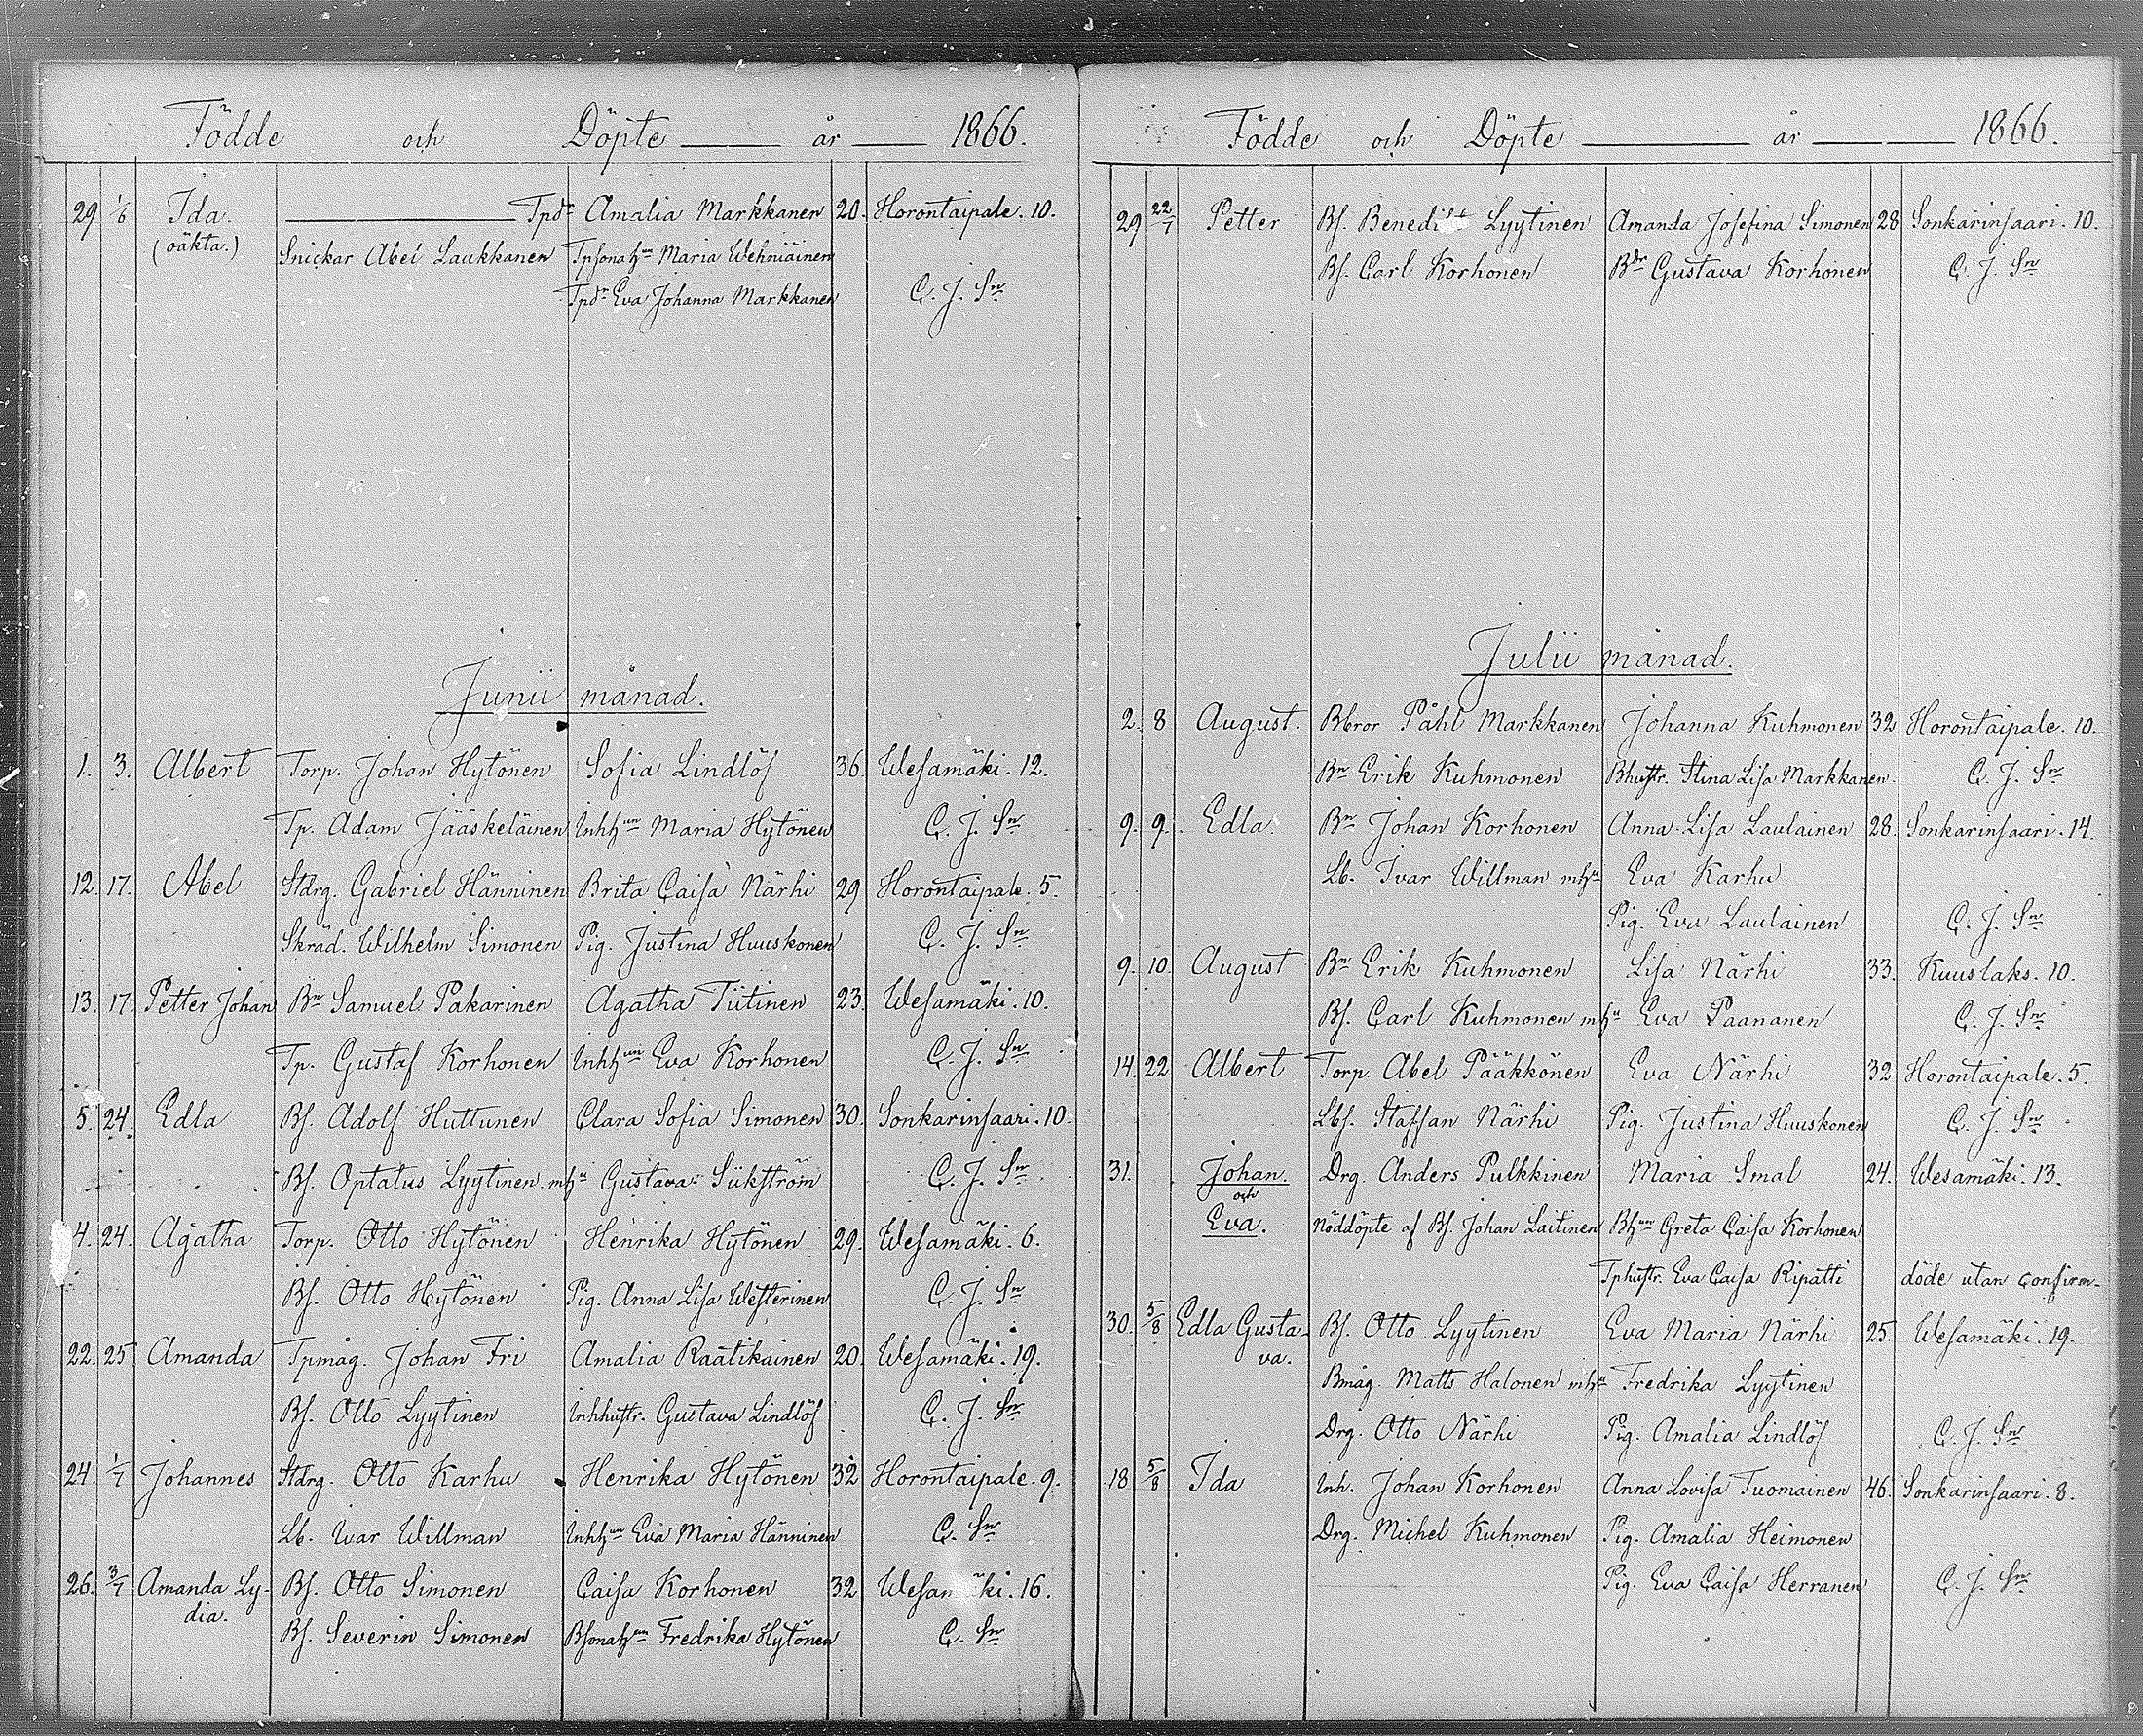 Födde och Döpte — år — 1866.
29 1/6 Ida. — Tpdr Amalia Markkanen 20. Horontaipale. 10.
(oäkta.) Snickar Abel Laukkanen Tpsonahn Maria Wehniäinen
Tpdr Eva Johanna Markkanen C. J. Sn
Junii månad.
1. 3. Albert Torp. Johan Hytönen Sofia Lindlöf 36. Wesamäki. 12.
Tp. Adam Jääskeläinen Inhhun Maria Hytönen C. J. Sn
12. 17. Abel Stdrg. Gabriel Hänninen Brita Caisa Närhi 29 Horontaipale. 5.
Skräd. Wilhelm Simonen Pig. Justina Huuskonen C. J. Sn
13. 17. Petter Johan Bn Samuel Pakarinen Agatha Tiitinen 23. Wesamäki. 10.
Tp. Gustaf Korhonen Inhhun Eva Korhonen C. J. Sn
5. 24. Edla Bs. Adolf Huttunen Clara Sofia Simonen 30. Sonkarinsaari. 10.
Bs. Optatus Lyytinen mhu Gustava Sükström C. J. Sn
4. 24. Agatha Torp. Otto Hytönen Henrika Hytönen 29. Wesamäki. 6.
Bs. Otto Hytönen Pig. Anna Lisa Westerinen C. J. Sn
22. 25 Amanda Tpmåg. Johan Fri Amalia Raatikainen 20. Wesamäki. 19.
Bs. Otto Lyytinen Inhhustr. Gustava Lindlöf C. J. Sn
24. 1/7 Johannes Stdrg. Otto Karhu Henrika Hytönen 32 Horontaipale. 9.
Lb. Ivar Willman Inhhun Eva Maria Hänninen C. Sn
26. 3/7 Amanda Ly- Bs. Otto Simonen Caisa Korhonen 32 Wesamäki. 16.
dia. Bs. Severin Simonen Bsonahun Fredrika Hytönen C. Sn
Födde och Döpte — år — 1866.
29 22/7 Petter Bs. Benedikt Lyytinen Amanda Josefina Simonen 28 Sonkarinsaari. 10.
Bs. Carl Korhonen Bdr Gustava Korhonen C. J. Sn
Julii månad.
2. 8 August. Bbror Påhl Markkanen Johanna Kuhmonen 32 Horontaipale. 10.
Bn Erik Kuhmonen Bhustr. Stina Lisa Markkanen. C. J. Sn
9. 9. Edla. Bn Johan Korhonen Anna Lisa Laulainen 28. Sonkarinsaari. 14.
Lb. Ivar Willman mhu Eva Karhu
Pig. Eva Laulainen C. J. Sn
9. 10. August Bn Erik Kuhmonen Lisa Närhi 33. Kuuslaks. 10.
Bs. Carl Kuhmonen mhu Eva Paananen C. J. Sn
14. 22 Albert Torp. Abel Pääkkönen Eva Närhi 32 Horontaipale. 5.
Lbs. Staffan Närhi Pig. Justina Huuskonen C. J. Sn
31. Johan. Drg. Anders Pulkkinen Maria Smal 24. Wesamäki. 13.
och
Eva. Nöddöpte af Bs. Johan Laitinen Bhun Greta Caisa Korhonen
Tphustr. Eva Caisa Ripatti döde utan confirm-
30. 5/8 Edla Gusta- Bs. Otto Lyytinen Eva Maria Närhi 25. Wesamäki. 19.
va.
Bmåg. Matts Halonen mhu Fredrika Lyytinen
Drg. Otto Närhi Pig. Amalia Lindlöf C. J. Sn
18 5/8 Ida Inh. Johan Korhonen Anna Lovisa Tuomainen 46. Sonkarinsaari. 8.
Drg. Michel Kuhmonen Pig. Amalia Heimonen
Pig. Eva Caisa Herranen C. J. Sn